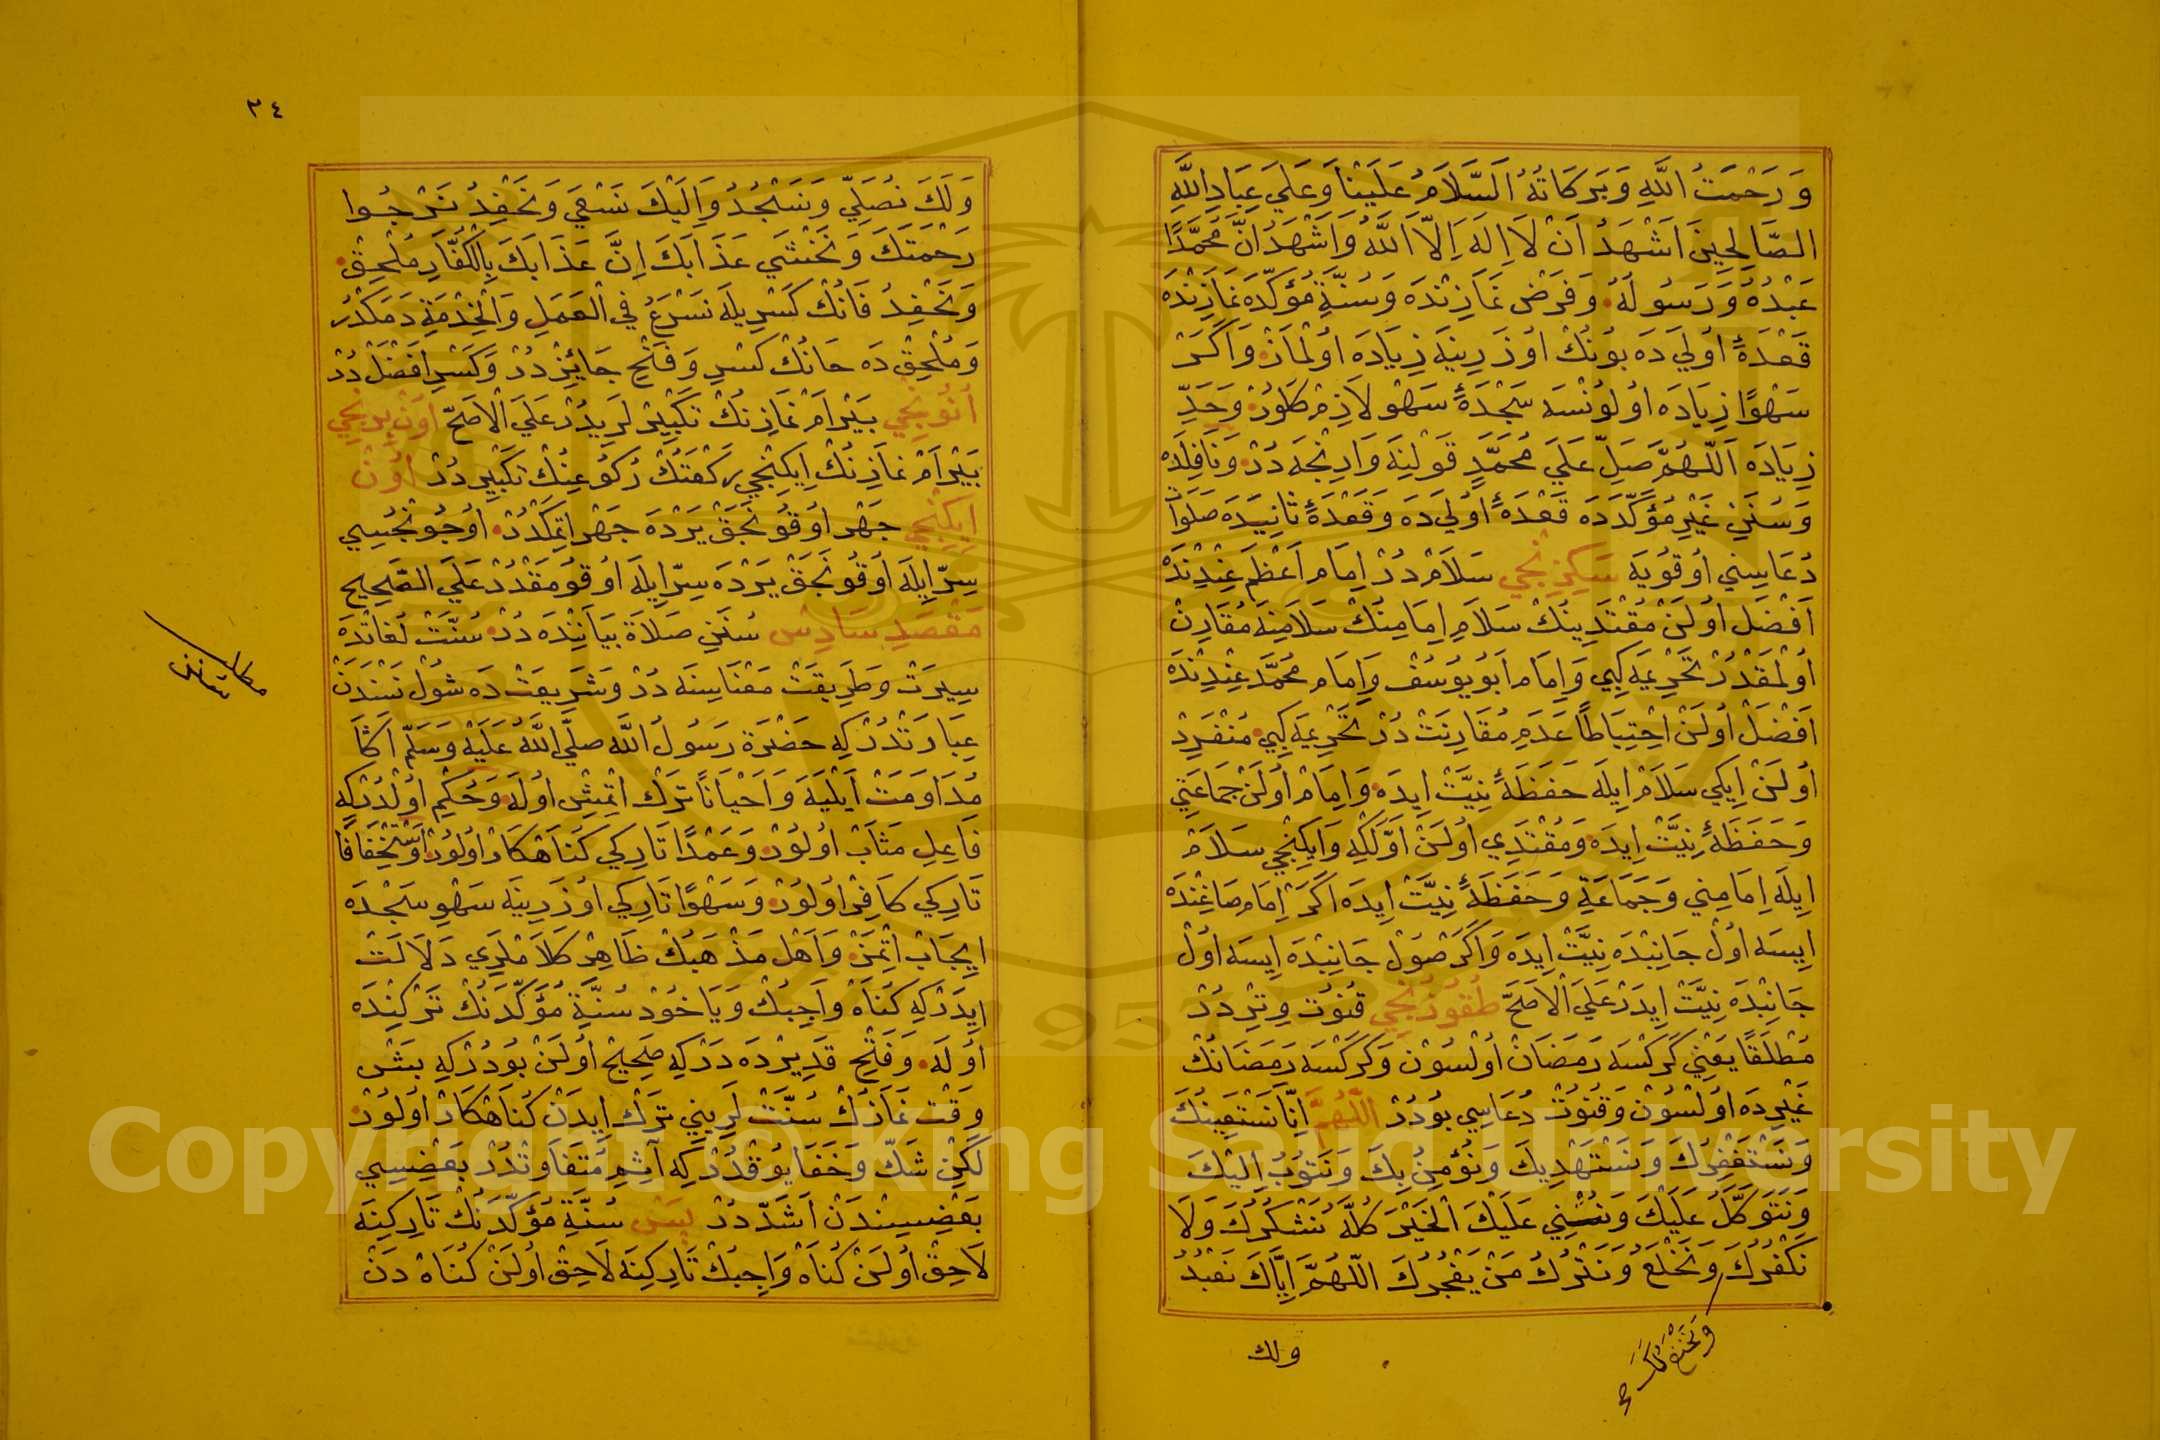 وَرَحْمَتُ اللَّهِ وَبَرَكَاتُهُ اَلسَّلَامُ عَلَيْنَا وَعَلَي عِبَادِ اللَّهِ
الصَّالِحِينَ اَشْهَدُ اَنْ لَا اِلَهَ اِلَّا اللَّهُ وَاَشْهَدُ اَنَّ مُحَمَّدًا
عَبْدُهُ وَرَسُولُهُ وَفَرَضْ نَمَازِنْدَه وَسُنَّةِ مُؤَكَّدَه نَمَازِنْدَه
قَعْدَۀِٔ اُولَي دَه بُونُكْ اُوزَرِينَه زِيَادَه اُولْمَازْ وَاَكَرْ
سَهْوًا زِيَادَه اُولُونْسَه سَجْدَۀِٔ سَهْو لَازِمْ كَلُورْ وَحَدِّ
زِيَادَه اَللّٰهُمَّ صَلِّ عَلَي مُحَمَّدٍ قَوْلِنَه وَارِنْجَه دُرْ وَنَافِلَدَه
وَسُنَنِ غَيْرِ مُؤَكَّدَه دَه قَعْدَۀِٔ اُولَي دَه وَقَعْدَۀِٔ ثَانِيَدَه صَلَوَاتْ
دُعَاسِنِي اُوقُويَه سَكِزِنْجِي سَلَامْ دُرْ اِمَام اَعْظَم عِنْدِنْدَه
اَفْضَل اُولَنْ مُقْتَدِينُكْ سَلَامِ اِمَامِنُكْ سَلَامِنَه مُقَارِنْ
اُولْمَقْدُرْ تَحْرِيمَه كِبِي وَاِمَام اَبُو يُوسُفْ وَاِمَام مُحَمَّد عِنْدِنْدَه
اَفْضَلْ اُولَنْ اِحْتِيَاطًا عَدَمِ مُقَارَنَتْ دُرْ تَحْرِيمَه كِبِي مُنْفَرِدْ
اُولَنْ اِيكِي سَلَامْ اِيلَه حَفَظَۀِٔ نِيَّتْ اِيدَه وَاِمَامْ اُولَنْ جَمَاعَتِي
وَحَفَظَۀِٔ نِيَّتْ اِيدَه وَمُقْتَدِي اُولَنْ اَوَّلْكِه وَاِيكِنْجِي سَلَامْ
اِيلَه اِمَامِنِي وَجَمَاعَةِ وَحَفَظَۀِٔ نِيَّتْ اِيدَه اَكَرْ اِمَام صَاغِنْدَه
اِيسَه اُولْ جَانِبْدَه نِيَّتْ اِيدَه وَاَكَرْ صُولْ جَانِبْدَه اِيسَه اُولْ
جَانِبْدَه نِيَّتْ اِيدَرْ عَلَيَ الْاَصَحّ طُقُوزُنْجِي قُنُوتِ وِتِرْ دُرْ
مُطْلَقًا يَعْنِي كَرَكْسَه رَمَضَانْ اُولْسُونْ وَكَرَكْسَه رَمَضَانُكْ
غَيْرِدَه اُولْسُونْ وَقُنُوتْ دُعَاسِي بُودُرْ اَللّٰهُمَّ اِنَّا نَسْتَعِينُكَ
وَنَسْتَغْفِرُكَ وَنَسْتَهْدِيكَ وَنُؤْمِنُ بِكَ وَنَتُوبُ اِلَيْكَ
وَنَتَوَكَّلُ عَلَيْكَ وَنُثْنِي عَلَيْكَ الْخَيْرَ كُلَّهُ نَشْكُرُكَ وَلَا
نَكْفُرُكَ وَنَخْلَعُ وَنَتْرُكُ مَنْ يَفْجُرُكَ اللّٰهُمَّ اِيَّاكَ نَعْبُدُ
وَنَخْنَعُ لَكَ صح
ولك
٣٤
وَلَكَ نُصَلِّي وَنَسْجُدُ وَاِلَيْكَ نَسْعَي وَنَحْفِدُ نَرْجُوا
رَحْمَتَكَ وَنَخْشَي عَذَابَكَ اِنَّ عَذَابَكَ بِالْكُفَّارِ مُلْحِقْ
وَنَحْفِدُ فَانُكْ كَسْرِيلَه نُسْرِعُ فِي الْعَمَلِ وَالْخِدْمَةِ دَمَكْدُرْ
وَمُلْحِقْ دَه حَانُكْ كَسْرِ وَفَتْحِ جَائِزْ دُرْ وَكَسْرِ اَفْضَلْ دُرْ
اُنُونْجِي بَيْرَامْ نَمَازِنُكْ تَكْبِيرْلَرِيدُرْ عَلَيَ الْاَصَحّ اُونْ بِرِنْجِي
بَيْرَامْ نَمَازِنُكْ اِيكِنْجِي رَكْعَتُكْ رُكُوعِنُكْ تَكْبِيرِ دُرْ اُونْ
اِيكِنْجِي جَهْر اُوقُونَجَقْ يَرْدَه جَهْر اِتْمَكْدُرْ اُوجُونْجُسِي
سِرّ اِيلَه اُوقُونَجَقْ يَرْدَه سِرّ اِيلَه اُوقُومَقْدُرْ عَلَيَ الصَّحِيحِ
مَقْصَدِ سَادِسْ سُنَنِ صَلَاةْ بَيَانِنْدَه دُرْ سُنَّتْ لُغَاتْدَه
سِيرَتْ وَطَرِيقَتْ مَعْنَاسِنَه دُرْ وَشَرِيعَتْ دَه شُولْ نَسْنَدَنْ
عِبَارَتْدُرْ كِه حَضْرَة رَسُولُ اللَّه صَلَّي اللَّهُ عَلَيْهِ وَسَلَّمْ اَكَا
مُدَاوَمَتْ اَيْلَيَه وَاَحْيَانًا تَرْك اِتْمِشْ اُولَه وَحُكْمِ اُولْدُرْكِه
فَاعِلِ مَثَابْ اُولُورْ وَعَمْدًا تَارِكِي كُنَاهْكَارْ اُولُورْ وَاسْتِخْفَافًا
تَارِكِي كَافِرْ اُولُورْ وَسَهْوًا تَارِكِي اُوزَرِينَه سَهْوِ سَجْدَه
اِيجَابْ اِتْمَزْ وَاَهْل مَذْهَبُكْ ظَاهِرْ كَلَامْلَرِي دَلَالَتْ
اِيدَرْكِه كُنَاهْ وَاجِبُكْ وَيَاخُودْ سُنَّةِ مُؤَكَّدَنُكْ تَرْكِنْدَه
اُولَه وَفَتْحِ قَدِيرْدَه دَرْكِه صَحِيحْ اُولَنْ بُودُرْكِه بَشْ
وَقْت نَمَازُكْ سُنَّتْ لَرِينِي تَرْك اِيدَنْ كُنَاهْكَارْ اُولُورْ
لَكِنْ شَكّ وَخَفَا يُوقْدُرْ كِه آثِمِ مُتَفَاوِتْدُرْ بَعْضِيسِي
بَعْضِيسِنْدَنْ اَشَدّ دُرْ پَسْ سُنَّةِ مُؤَكَّدَنُكْ تَارِكِنَه
لَاحِقْ اُولَنْ كُنَاهْ وَاجِبُكْ تَارِكِنَه لَاحِقْ اُولَنْ كُنَاهْ دَنْ
Copyright © King Saud University
1957